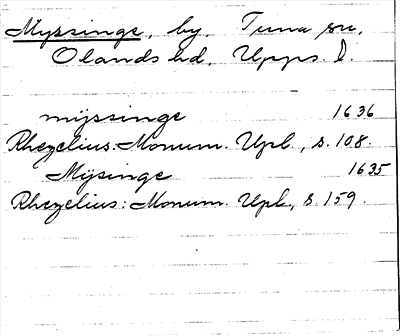 Myssinge, by, Tuna sn,
Olands hd, Upps. l.
mÿssinge 1636
Rhezelius: Monum. Upl., s. 108.
Mÿsinge 1635
Rhezelius: Monum. Upl., s. 159.